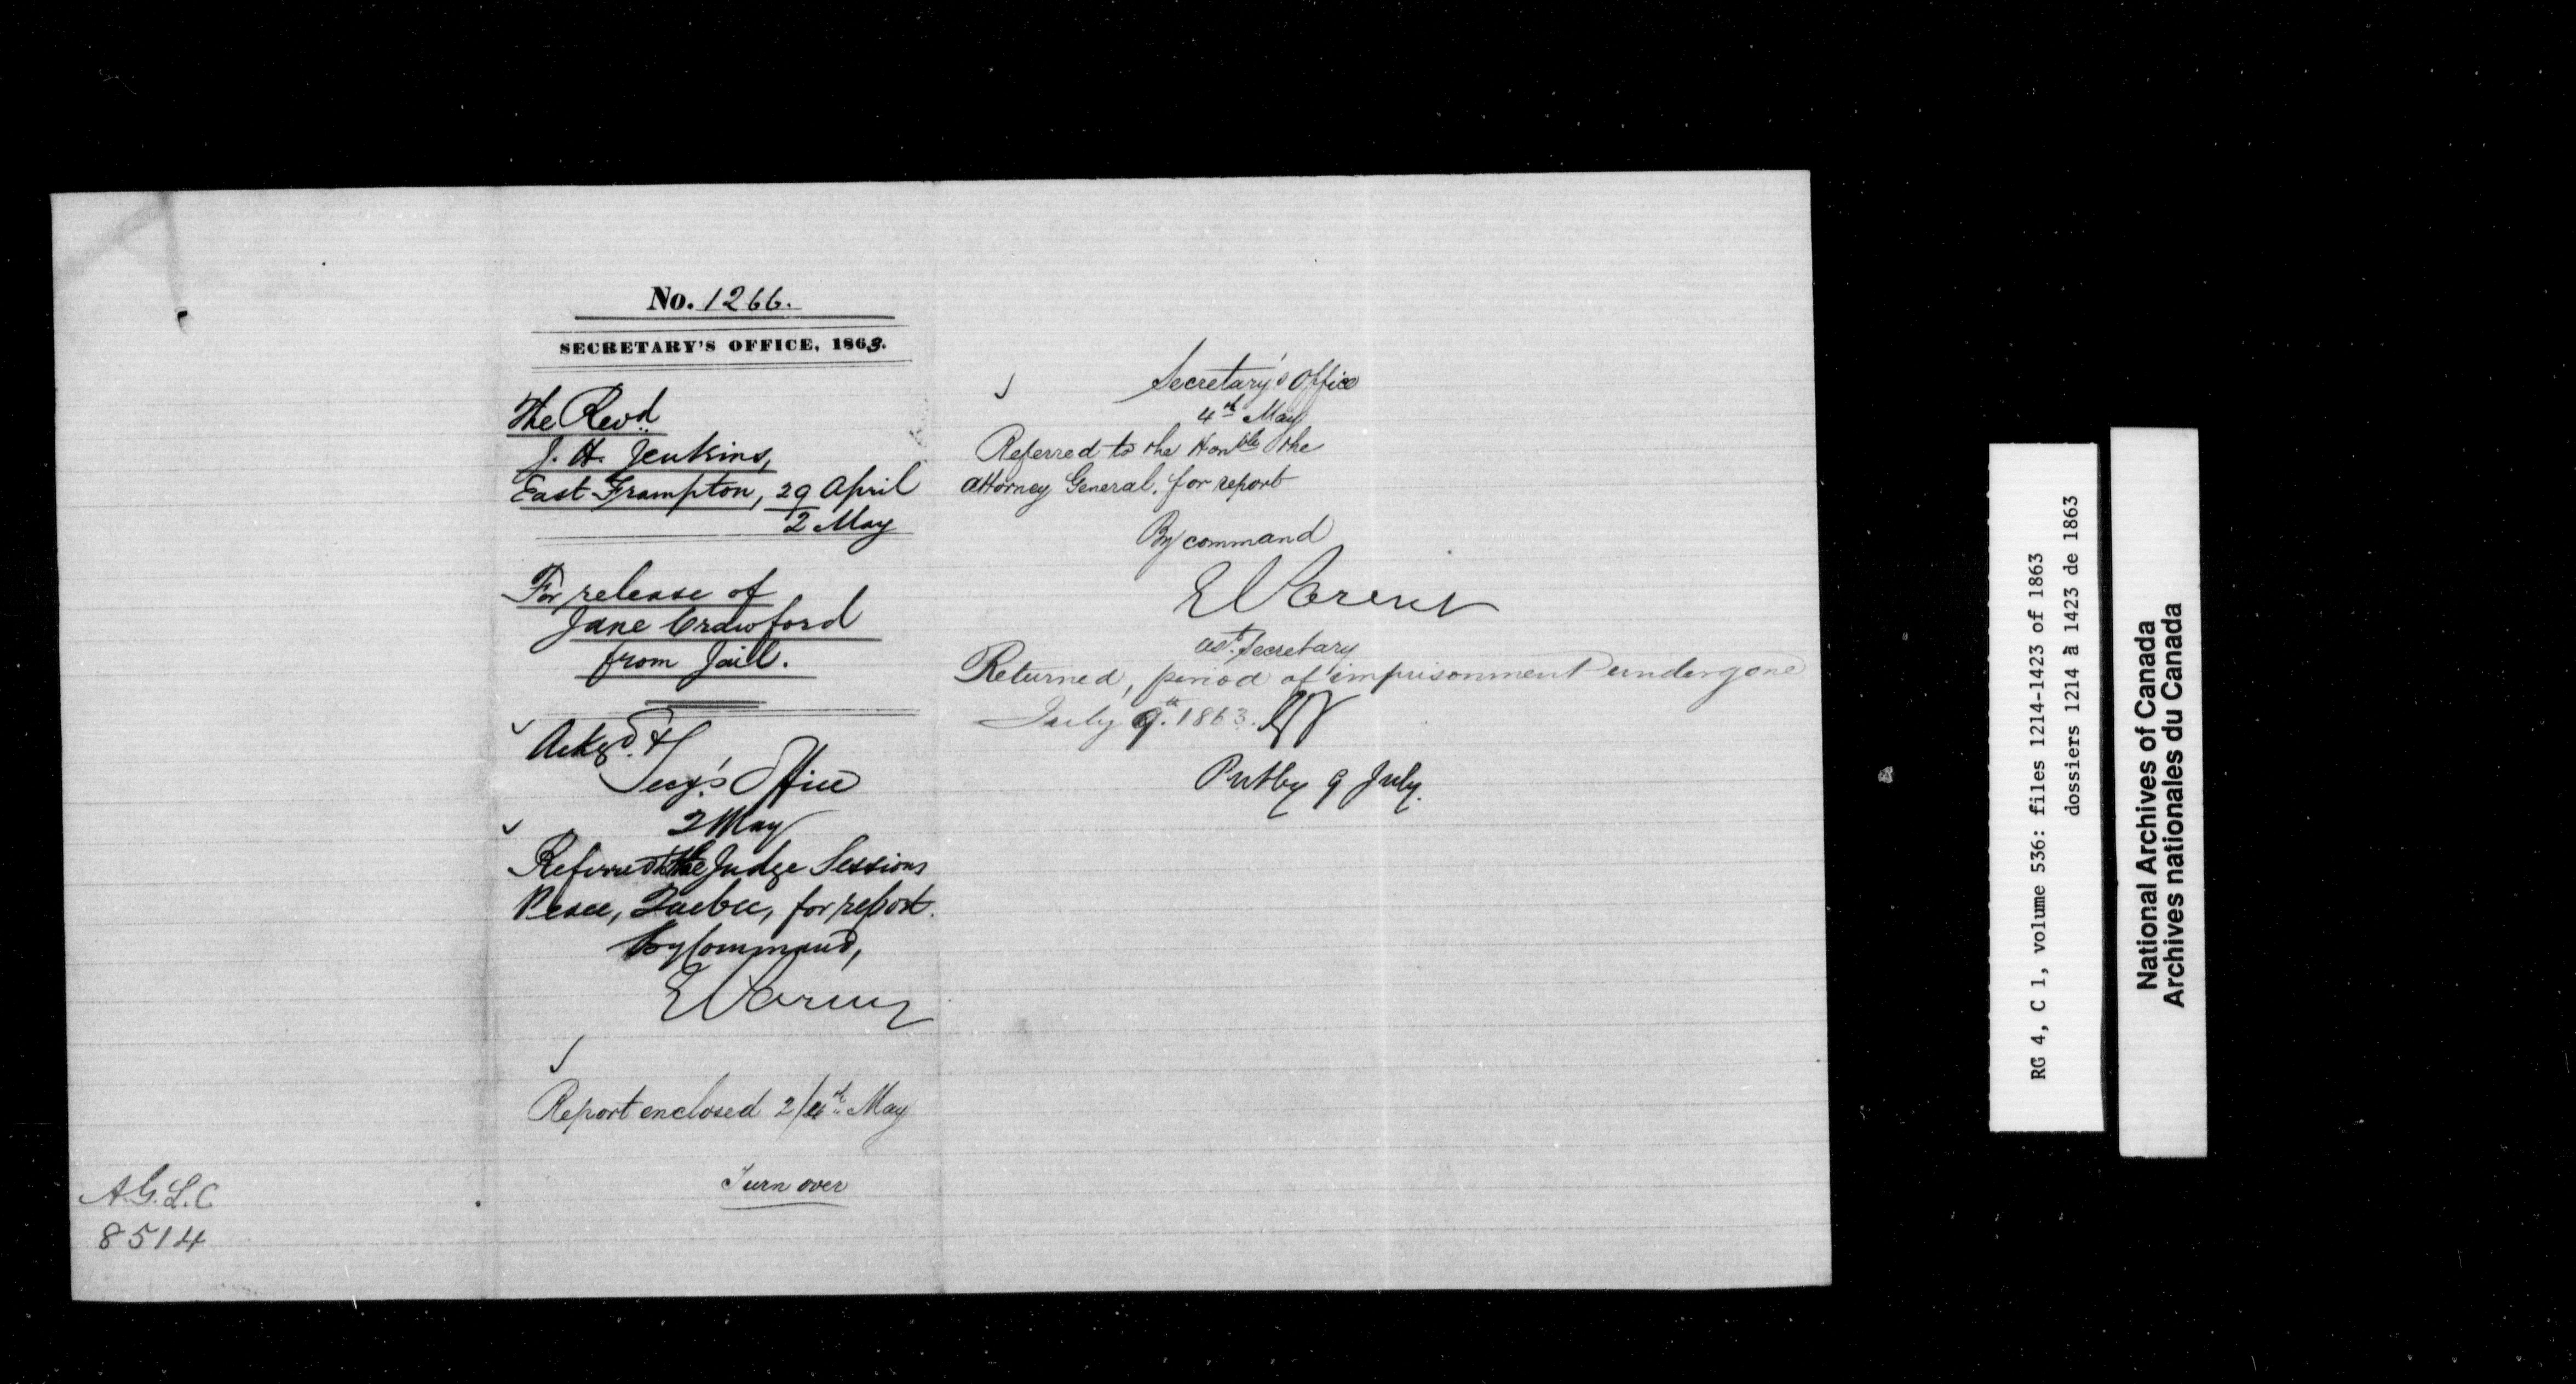 No. 1266.
SECRETARY'S OFFICE, 1863.
The Revd
J. H. Jenkins,
East Frampton, 29 April
2 May
For release of
Jane Crawford
from Jail.
Ackgd. &
Secy's Office
2 May
Referred to the Judge Sessions
Peace, Quebec, for report.
By Command,
E Parent
Report enclosed 2/4th May
Turn over
A.G.L.C.
8514
Secretary's Office
4th May
Referred to the Honble the
Attorney General, for report
By command
E Parent
asst. Secretary
Returned, period of imprisonment undergone
July 9th. 1863.
Put by 9 July.
RG 4, C 1, volume 536: files 1214-1423 of 1863
dossiers 1214 à 1423 de 1863
National Archives of Canada
Archives nationales du Canada